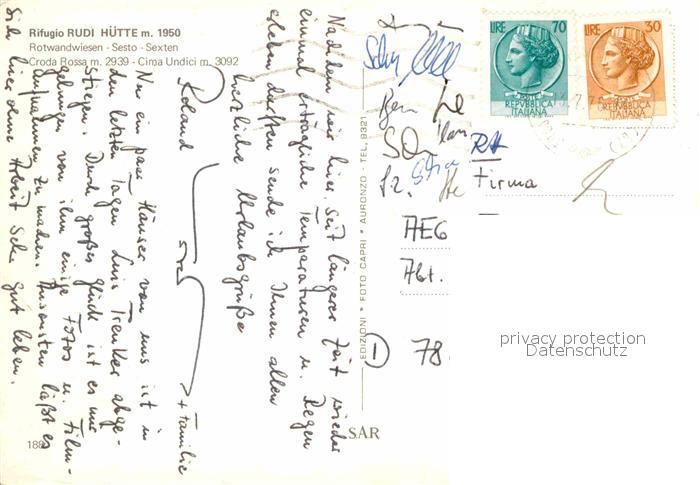 Rifugio RUDI HÜTTE m. 1950
Rotwandwiesen - Sesto - Sexten
Croda Rossa m. 2939 - Cima Undici m. 3092
Nachdem wir hier seit längerer Zeit wieder
einmal erträgliche Temperaturen u. Regen
erleben durften sende ich Ihnen allen
herzliche Urlaubsgrüße
Roland
+ Familie
Nur ein paar Häuser von uns ist in
den letzten Tagen Luis Trenker abge-
stiegen. Durch großes Glück ist es mir
gelungen von ihm einige Fotos u. Film-
aufnahmen zu machen. Ansonsten läßt es
sich hier ohne Arbeit sehr gut leben.
188
EDIZIONI • FOTO CAPRI • AURONZO - TEL. 9321
SAR
LIRE 70
REPVBBLICA
ITALIANA
LIRE 30
REPVBBLICA
ITALIANA
Firma
AEG
Abt.
78
privacy protection
Datenschutz